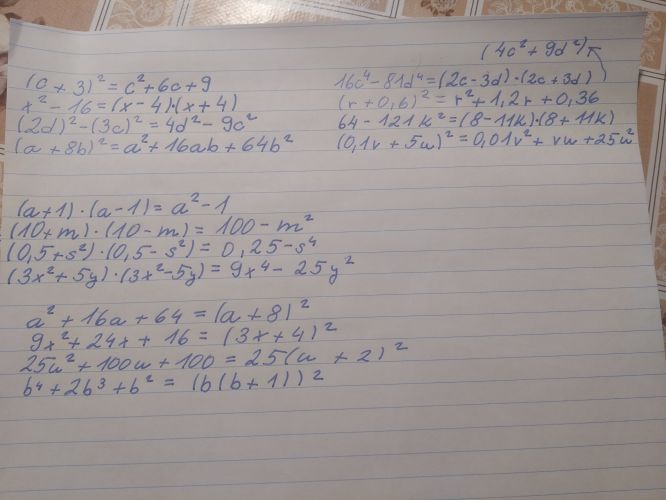 (c + 3)² = c² + 6c + 9
x² - 16 = (x - 4)·(x + 4)
(2d)² - (3c)² = 4d² - 9c²
(a + 8b)² = a² + 16ab + 64b²
(4c² + 9d²)
16c⁴ - 81d⁴ = (2c - 3d)·(2c + 3d)
(r + 0,6)² = r² + 1,2r + 0,36
64 - 121k² = (8 - 11k)·(8 + 11k)
(0,1v + 5u)² = 0,01v² + vu + 25u²
(a+1)·(a-1) = a² - 1
(10+m)·(10-m) = 100 - m²
(0,5+s²)·(0,5-s²) = 0,25 - s⁴
(3x²+5y)·(3x²-5y) = 9x⁴ - 25y²
a² + 16a + 64 = (a + 8)²
9x² + 24x + 16 = (3x + 4)²
25u² + 100u + 100 = 25(u + 2)²
b⁴ + 2b³ + b² = (b(b + 1))²